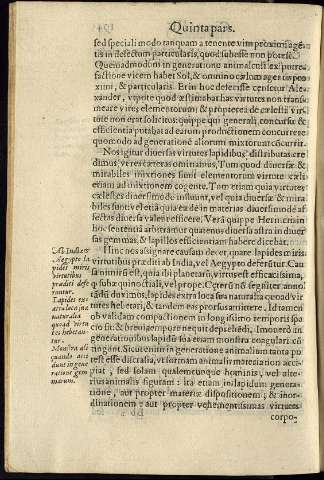 Quinta pars.
sed speciali modo tanquam a tenente vim proximi agẽ
tis in defectum particularis, quod subesse non potest.
Quemadmodum in generatione animalculi ex putre
factione vicem habet Sol, & omnino cælum agentis pro
ximi, & particularis. Et in hoc defecisse censetur Ale
xander, vtpote quod æstimabat has virtutes non trans
meare vires elementorum: & propterea de cælesti vir
tute non erat solicitus: quippe qui generali, concursu &
efficientia putabat ad earum productionem concurrere
quomodo ad generationē aliorum mixtorum cōcurrit.
Nos igitur diuersas virtutes lapidibus distributas cre
dimus, vt res cæteras omninas, Tum quod diuersæ &
mirabiles mixtiones sunt elementorum virtute cæli
etiam ad mixtionem cogente. Tom etiam quia virtutes
cælestes diuersimode influunt, vel quia diuersæ & mira
biles sunt: vel etiā quia eædē in materias diuersimodē af
fectas diuersa valent efficere. Vera quippe Hermetem in
hoc sententia arbitramur quatenus diuersa astra in diuer
sas gemmas, & lapillos efficientiam habere dicebat.
Hinc nos assignare causam decet, quare lapides miris
virtutibus prædicti ab India, vel Aegypto deferūtur. Cau
sa nimirū est, quia ibi planetarū, virtus est efficacissima,
tādū duximus, lapides extra loca sua naturalia quoad vir
tutes hebetari, & tandem eas prorsus amittere. Id tamen
ob validam compactionem in longissimo temporis spa
cio fit: & breui tempore nequit depræhēdi. Imo verò in
generationibus lapidū sua etiam monstra coagulari cō
tingent. Sicut enim in generatione animalium tanta po
test esse discrasia, vt formam animalis materia non acci
piat, sed solam qualemcunque hominis, vel alte-
rius animalis figuram: ita etiam in lapidum genera-
tione, aut propter materiæ dispositionem, & inor-
dinationem: aut propter vehementissimas virtutes
corpo-
Ab India &
Aegypto la
pides miris
virtutibus
præditi defe
runtur.
Lapides ex
tra loca sua
naturalia
quoad virtu
tes hebetan-
tur.
Monstra ali
quando acci
dunt in gene
ratione gem
marum.